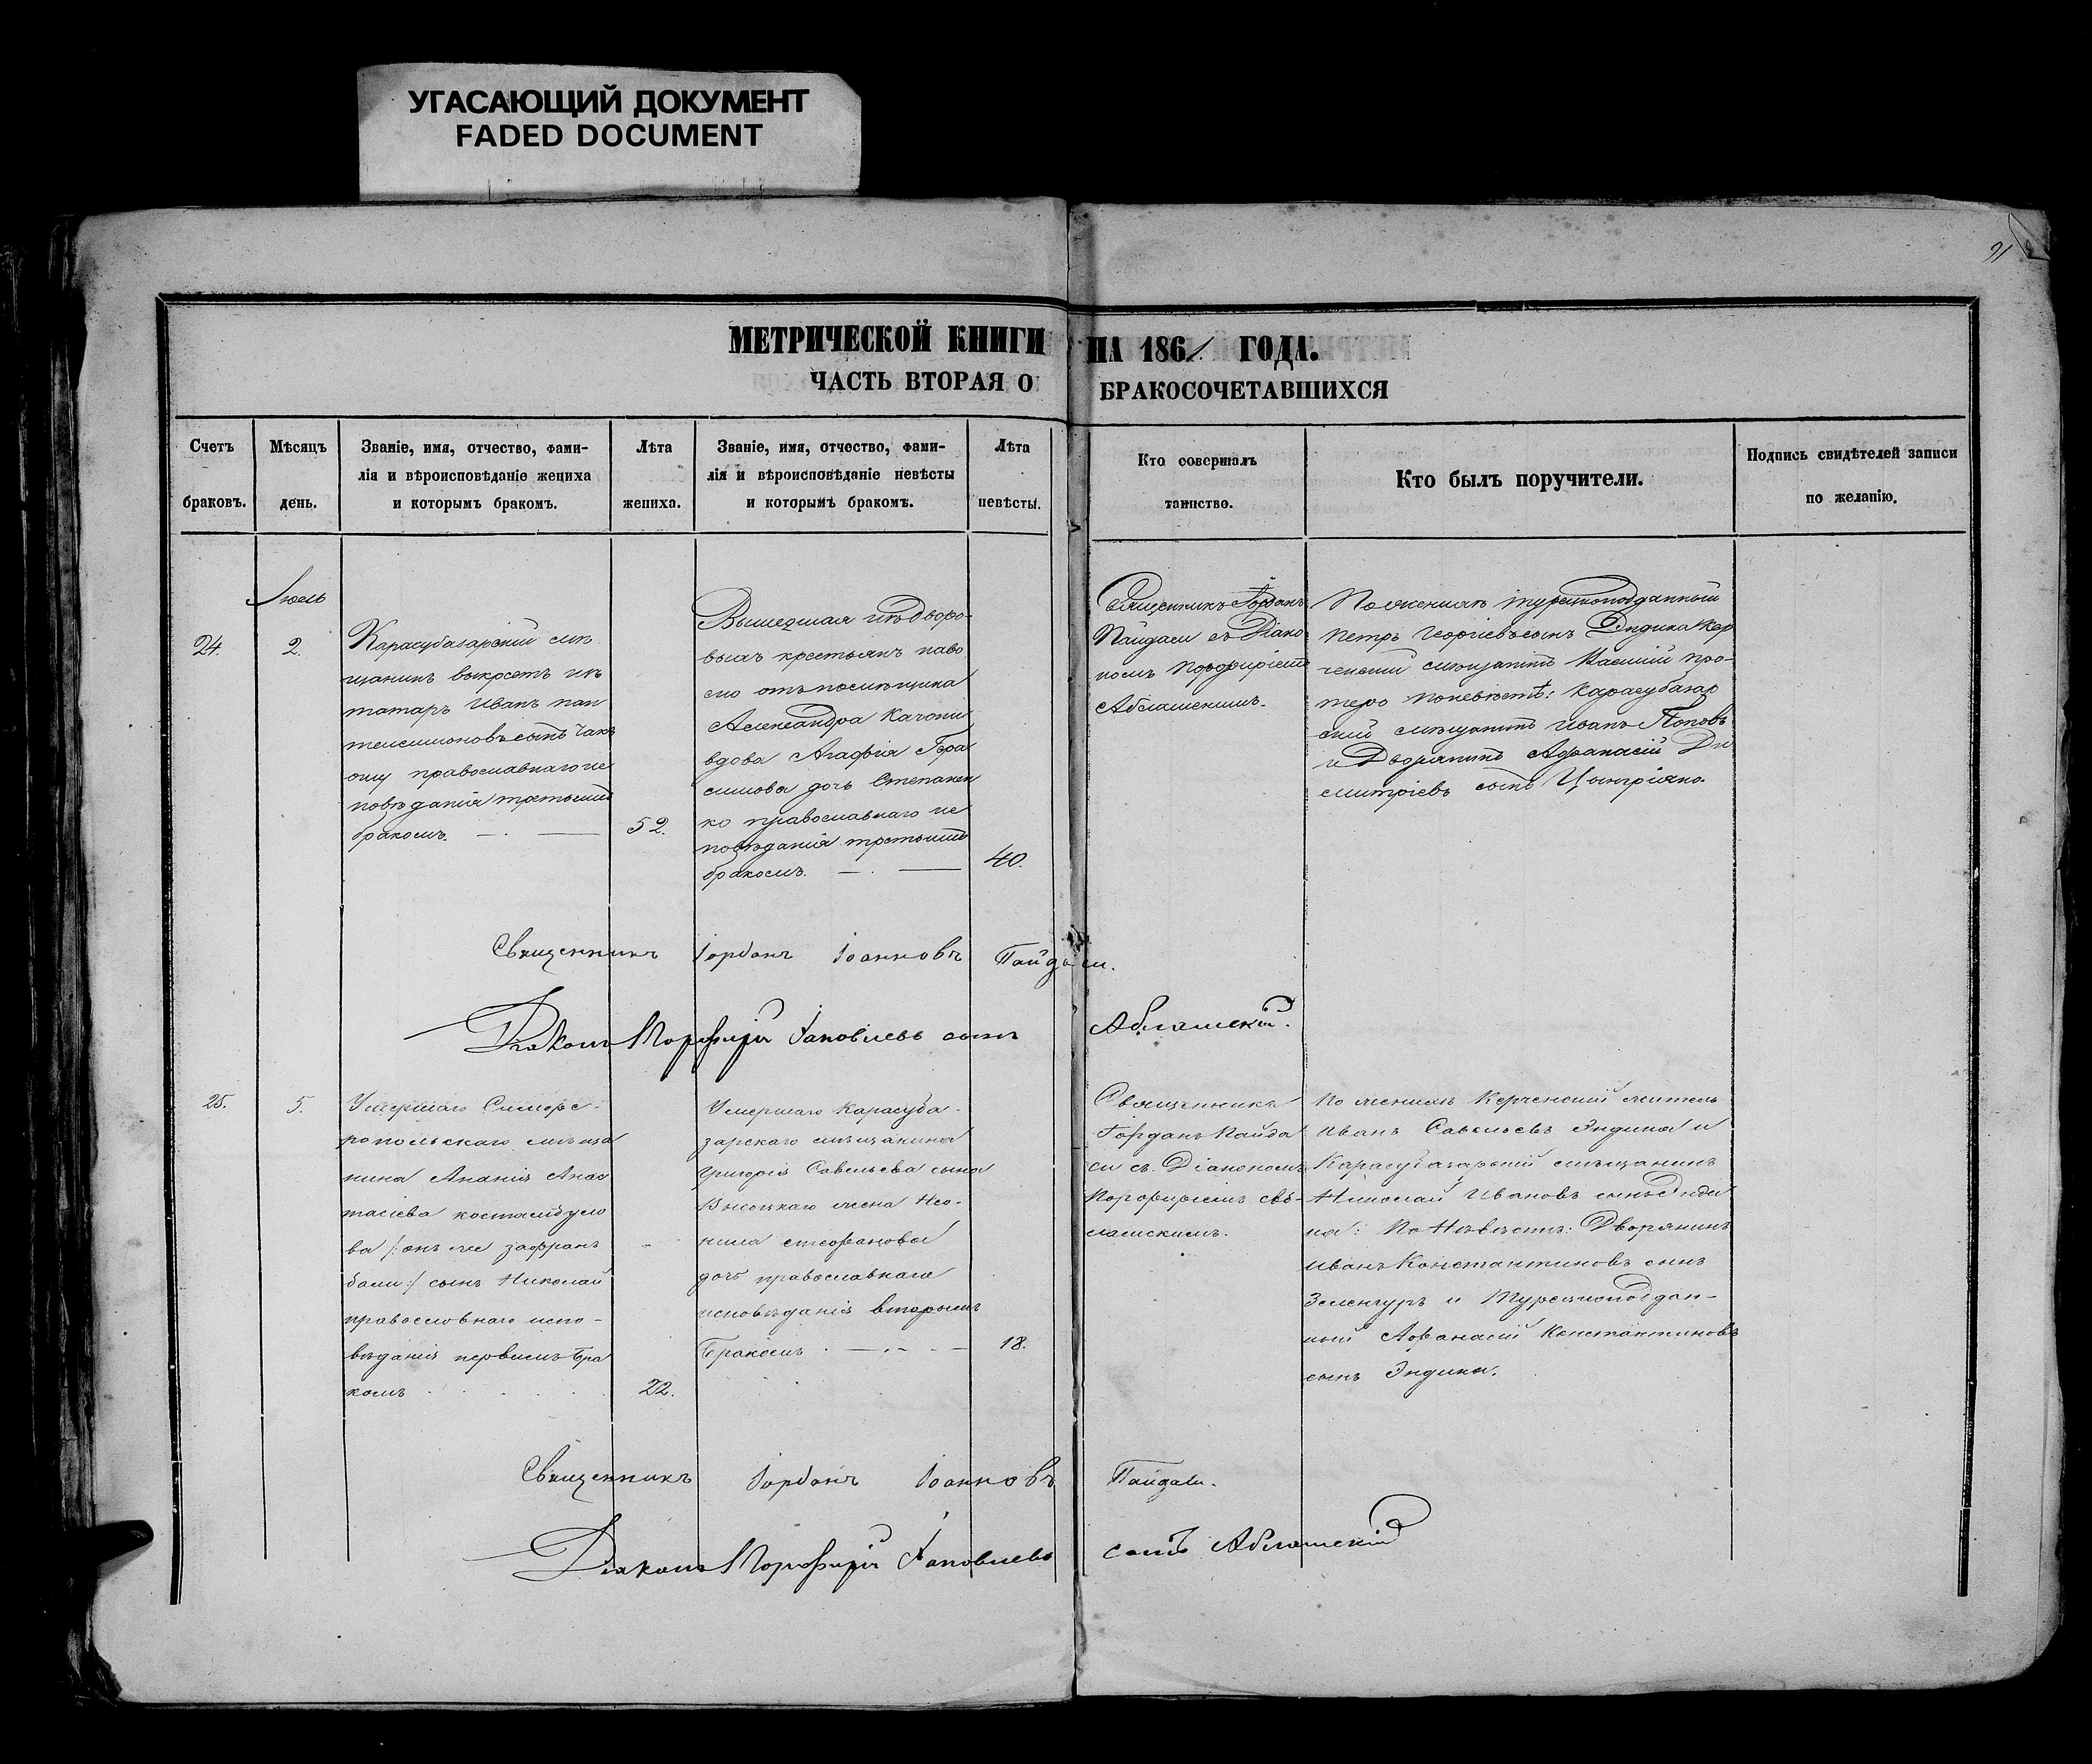 УГАСАЮЩИЙ ДОКУМЕНТ
FADED DOCUMENT
91
МЕТРИЧЕСКОЙ КНИГИ НА 1861 ГОДА.
ЧАСТЬ ВТОРАЯ О БРАКОСОЧЕТАВШИХСЯ
Счетъ
браковъ.
Мѣсяцъ
день.
Званіе, имя, отчество, фами-
лія и вѣроисповѣданіе жениха
и которымъ бракомъ.
Лѣта
жениха.
Званіе, имя, отчество, фами-
лія и вѣроисповѣданіе невѣсты
и которымъ бракомъ.
Лѣта
невѣсты.
Кто совершалъ
таинство.
Кто былъ поручители.
Подпись свидѣтелей записи
по желанію.
24.
Іюль
2.
Карасубазарскій мѣ
щанинъ выкрестъ изъ
татаръ Иванъ пан
телимоновъ сынъ Чак
ошу православнаго ис
повѣданія третьимъ
бракомъ.
52.
Вышедшая изъ дворо-
выхъ крестьянъ
отъ помѣщика
Александра Качони
вдова Агафія Гера
симова дочь Степанен
ко православнаго ис
повѣданія третьимъ
бракомъ.
40.
Священникъ Іорданъ
Пайдаси съ Діако
номъ Порфиріемъ
Абламскимъ.
По женихѣ турецкоподданный
петръ Георгіевъ сынъ Эндика Кер
ченскій мѣщанинъ Василій про-
теро по невѣстѣ: Карасубазар
скій мѣщанинъ Иванъ Поповъ
и Дворянинъ Афанасій Ди
митріевъ сынъ
Священникъ Іорданъ Іоанновъ Пайдаси.
Діаконъ Порфирій Іаковлевъ сынъ Абламскій.
25.
5.
Умершаго Симфе-
ропольскаго мѣща
нина Ананія Анас
тасіева костамбуло
ва /:онъ же зафранъ
бали:/ сынъ Николай
православнаго испо-
вѣданія первымъ бра
комъ
22.
Умершаго Карасуба-
зарскаго мѣщанина
Григорія Савельева сына
Высоцкаго жена Нео-
нила стефанова
дочь православнаго
исповѣданія вторымъ
Бракомъ
18.
Священникъ
Іорданъ Пайда
си съ Діакономъ
Порфиріемъ Аб-
ламскимъ.
По женихѣ Керченскій житель
Иванъ Савельевъ Эндика и
Карасубазарскій мѣщанинъ
Николай Ивановъ сынъ
на: По Невѣстѣ: Дворянинъ
Иванъ Константиновъ сынъ
Зеленгуръ и Турецкоподдан-
ный Афанасій Константиновъ
сынъ Эндика.
Священникъ Іорданъ Іоанновъ Пайдаси.
Діаконъ Порфирій Іаковлевъ сынъ Абламскій